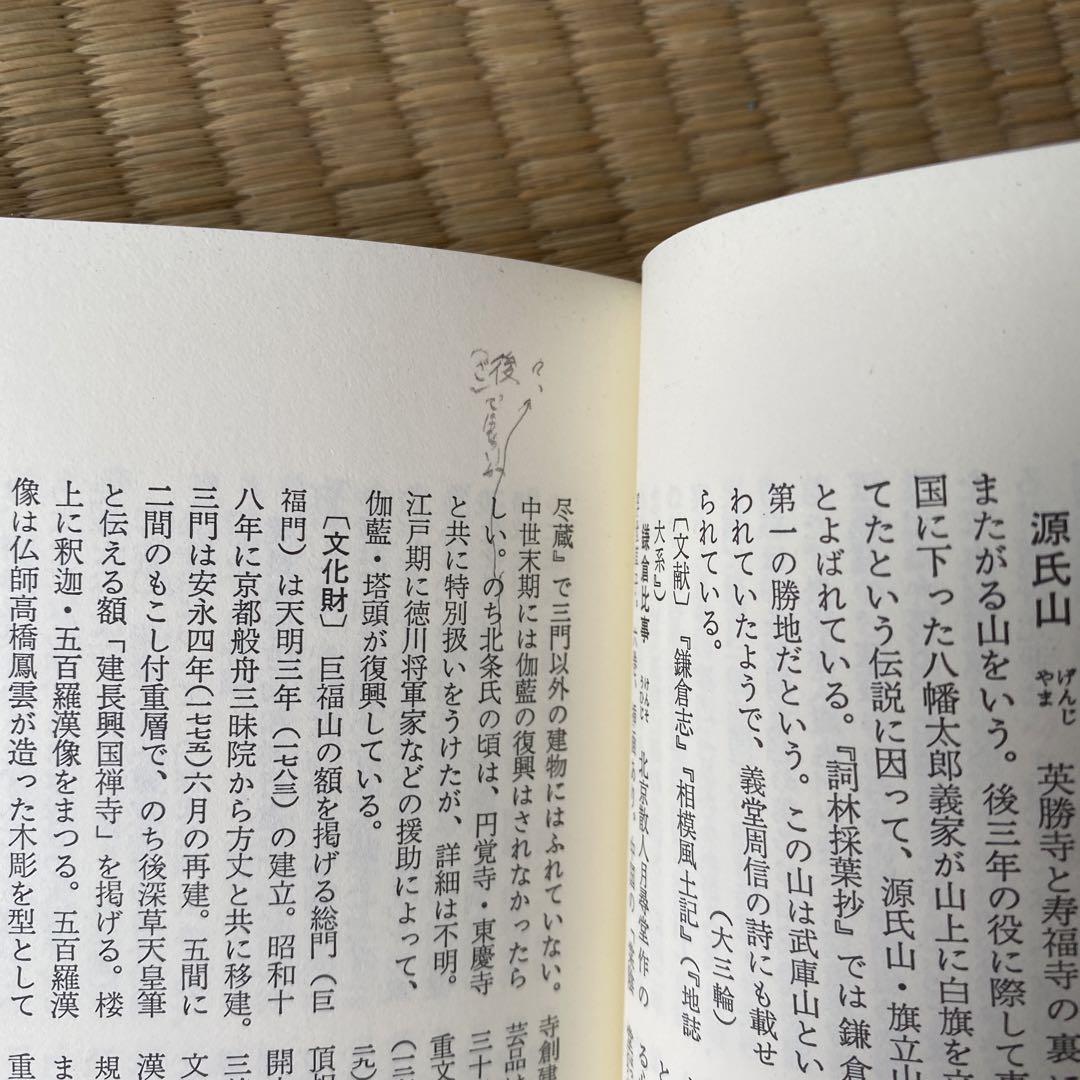 源氏山 げんじやま 英勝寺と寿福寺の裏に
またがる山をいう。後三年の役に際して東
国に下った八幡太郎義家が山上に白旗を立
てたという伝説に因って、源氏山・旗立山
とよばれている。『詞林採葉抄』では鎌倉
第一の勝地だという。この山は武庫山とい
われていたようで、義堂周信の詩にも載せ
られている。
（大三輪）
〔文献〕『鎌倉志』『相模風土記』（『地誌
大系』）
鎌倉比事 北京散人月尋堂作の
後
ではない
尽蔵』で三門以外の建物にはふれていない。
中世末期には伽藍の復興はされなかったら
しい。のち北条氏の頃は、円覚寺・東慶寺
と共に特別扱いをうけたが、詳細は不明。
江戸期に徳川将軍家などの援助によって、
伽藍・塔頭が復興している。
〔文化財〕 巨福山の額を掲げる総門（巨
福門）は天明三年（一七八三）の建立。昭和十
八年に京都般舟三昧院から方丈と共に移建。
三門は安永四年（一七七五）六月の再建。五間に
二間のもこし付重層で、のち後深草天皇筆
と伝える額「建長興国禅寺」を掲げる。楼
上に釈迦・五百羅漢像をまつる。五百羅漢
像は仏師高橋鳳雲が造った木彫を型として
寺創建
三十
重文